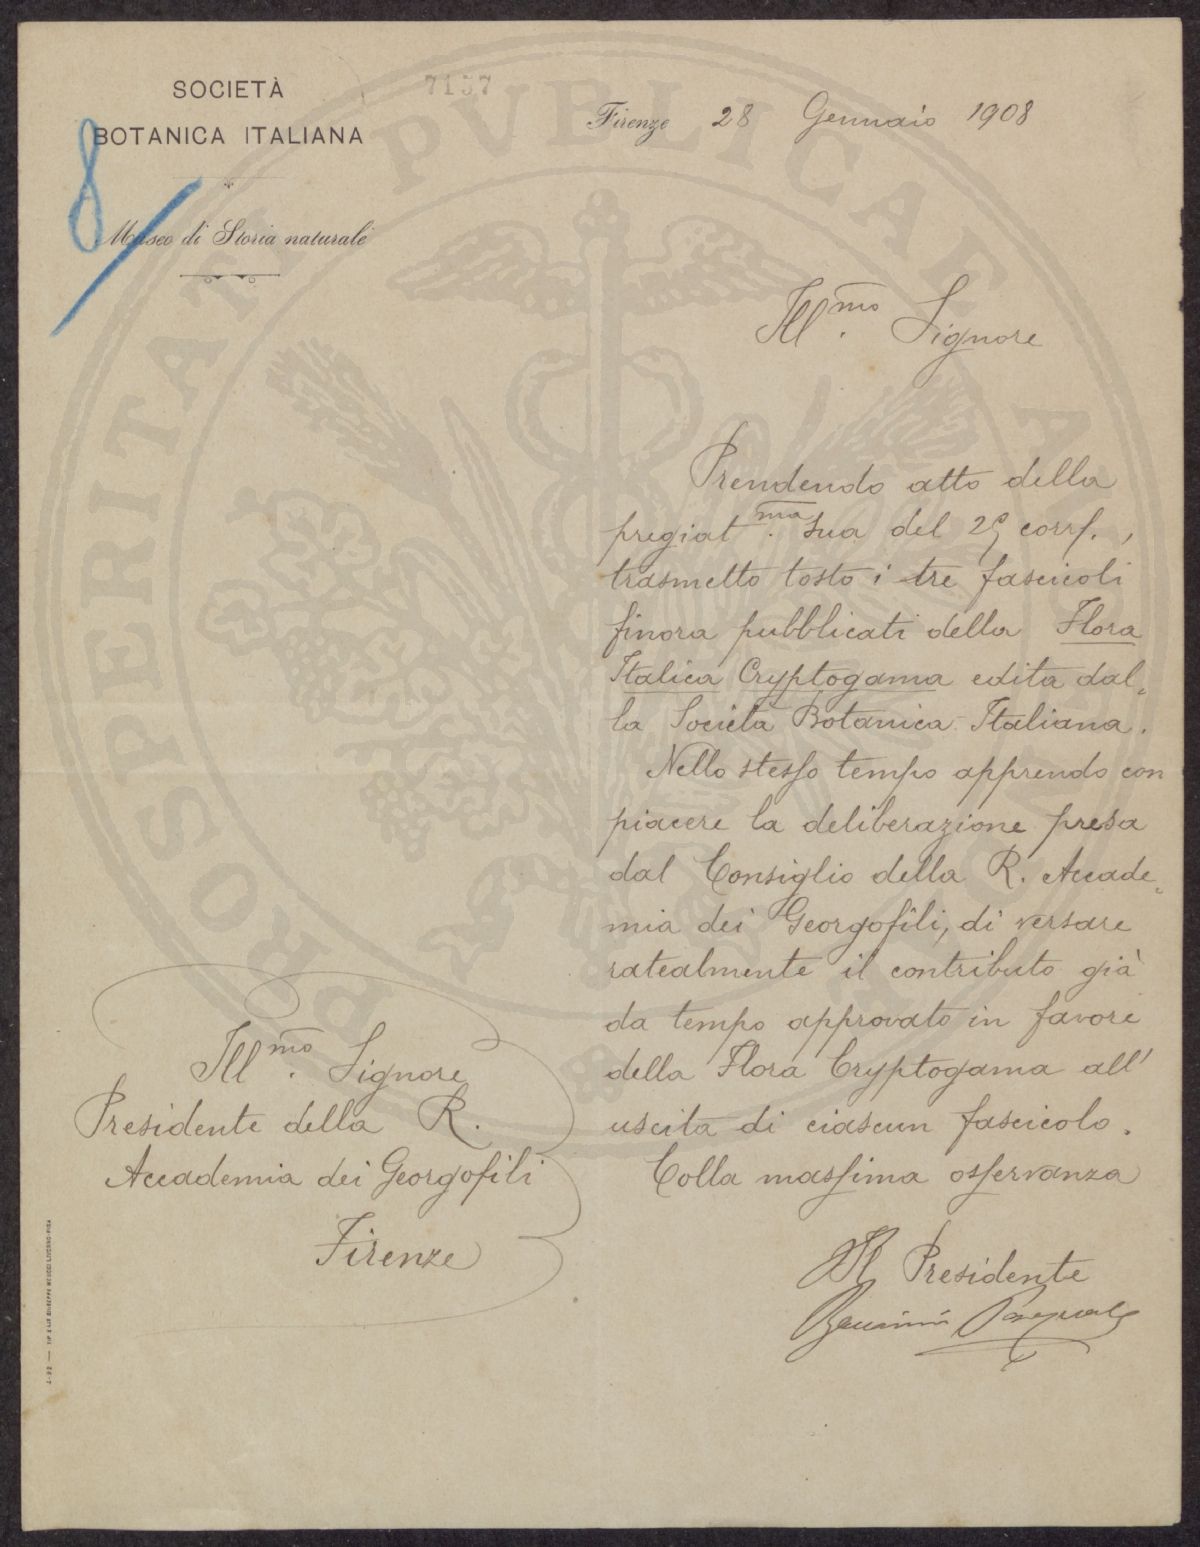 SOCIETÀ
BOTANICA ITALIANA
Museo di Storia naturale
8
7157
Firenze 28 Gennaio 1908
Ill.mo Signore
Prendendo atto della
pregiat.ma sua del 25 corr.,
trasmetto tosto i tre fascicoli
finora pubblicati della Flora
Italica Cryptogama edita dal-
la Società Botanica Italiana.
Nello stesso tempo apprendo con
piacere la deliberazione presa
dal Consiglio della R. Accade-
mia dei Georgofili, di versare
ratealmente il contributo già
da tempo approvato in favore
della Flora Cryptogama all'
uscita di ciascun fascicolo.
Colla massima osservanza
Il Presidente
Baccarini Pasquale
Ill.mo Signore
Presidente della R.
Accademia dei Georgofili
Firenze
PROSPERITATI PVBLICAE